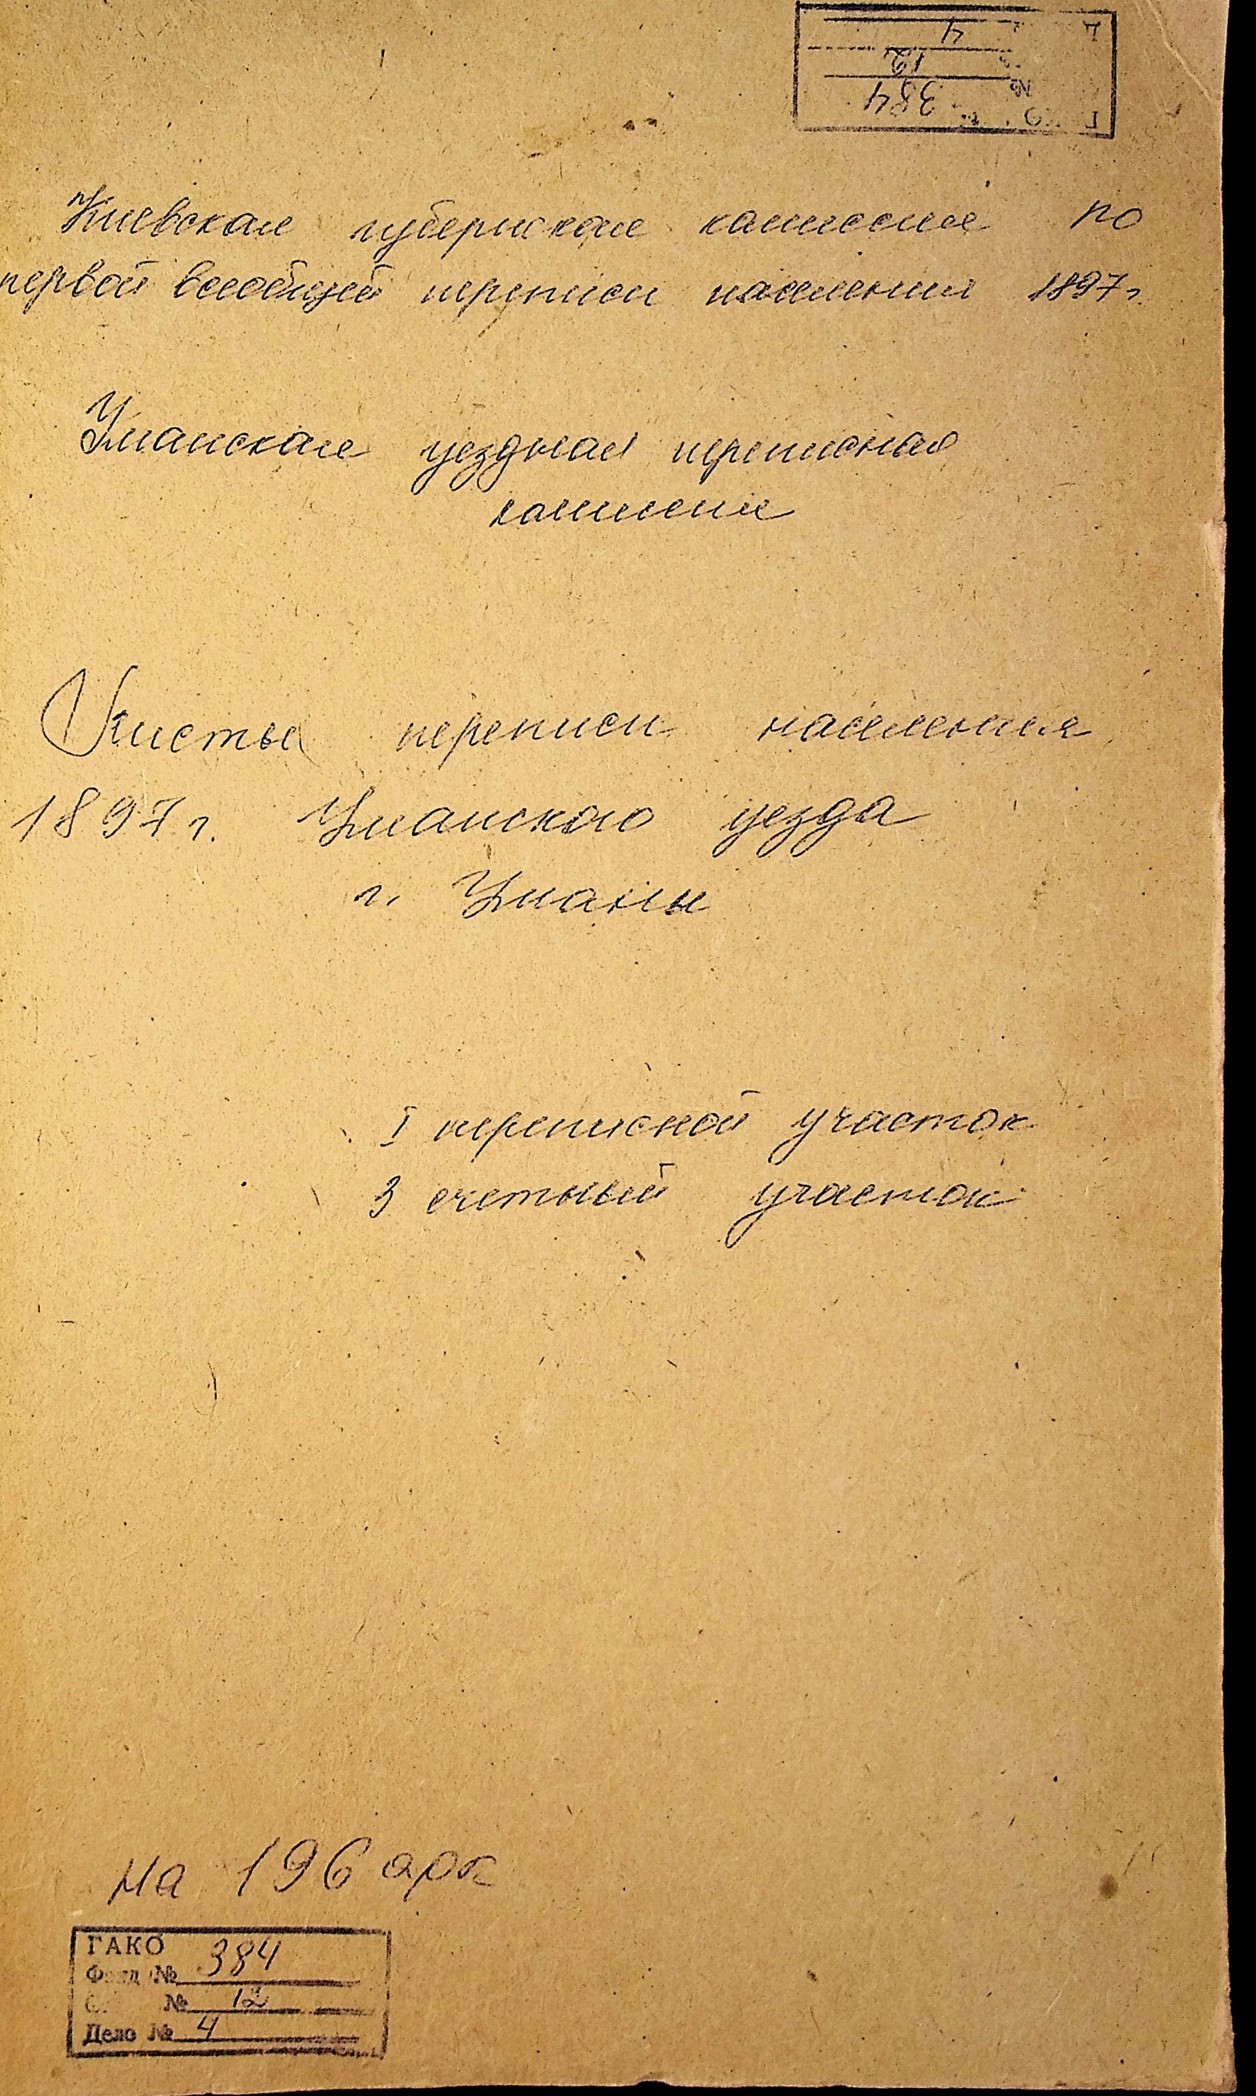 4
12
№ 384
Киевская губернская комиссия по
первой всеобщей переписи населения 1897 г.
Уманская уездная переписная
комиссия
Листы переписи населения
1897 г. Уманского уезда
г. Умань
I переписной участок
3 счетный участок
на 196 арк
ГАКО
Фонд № 384
№ 12
Дело № 4